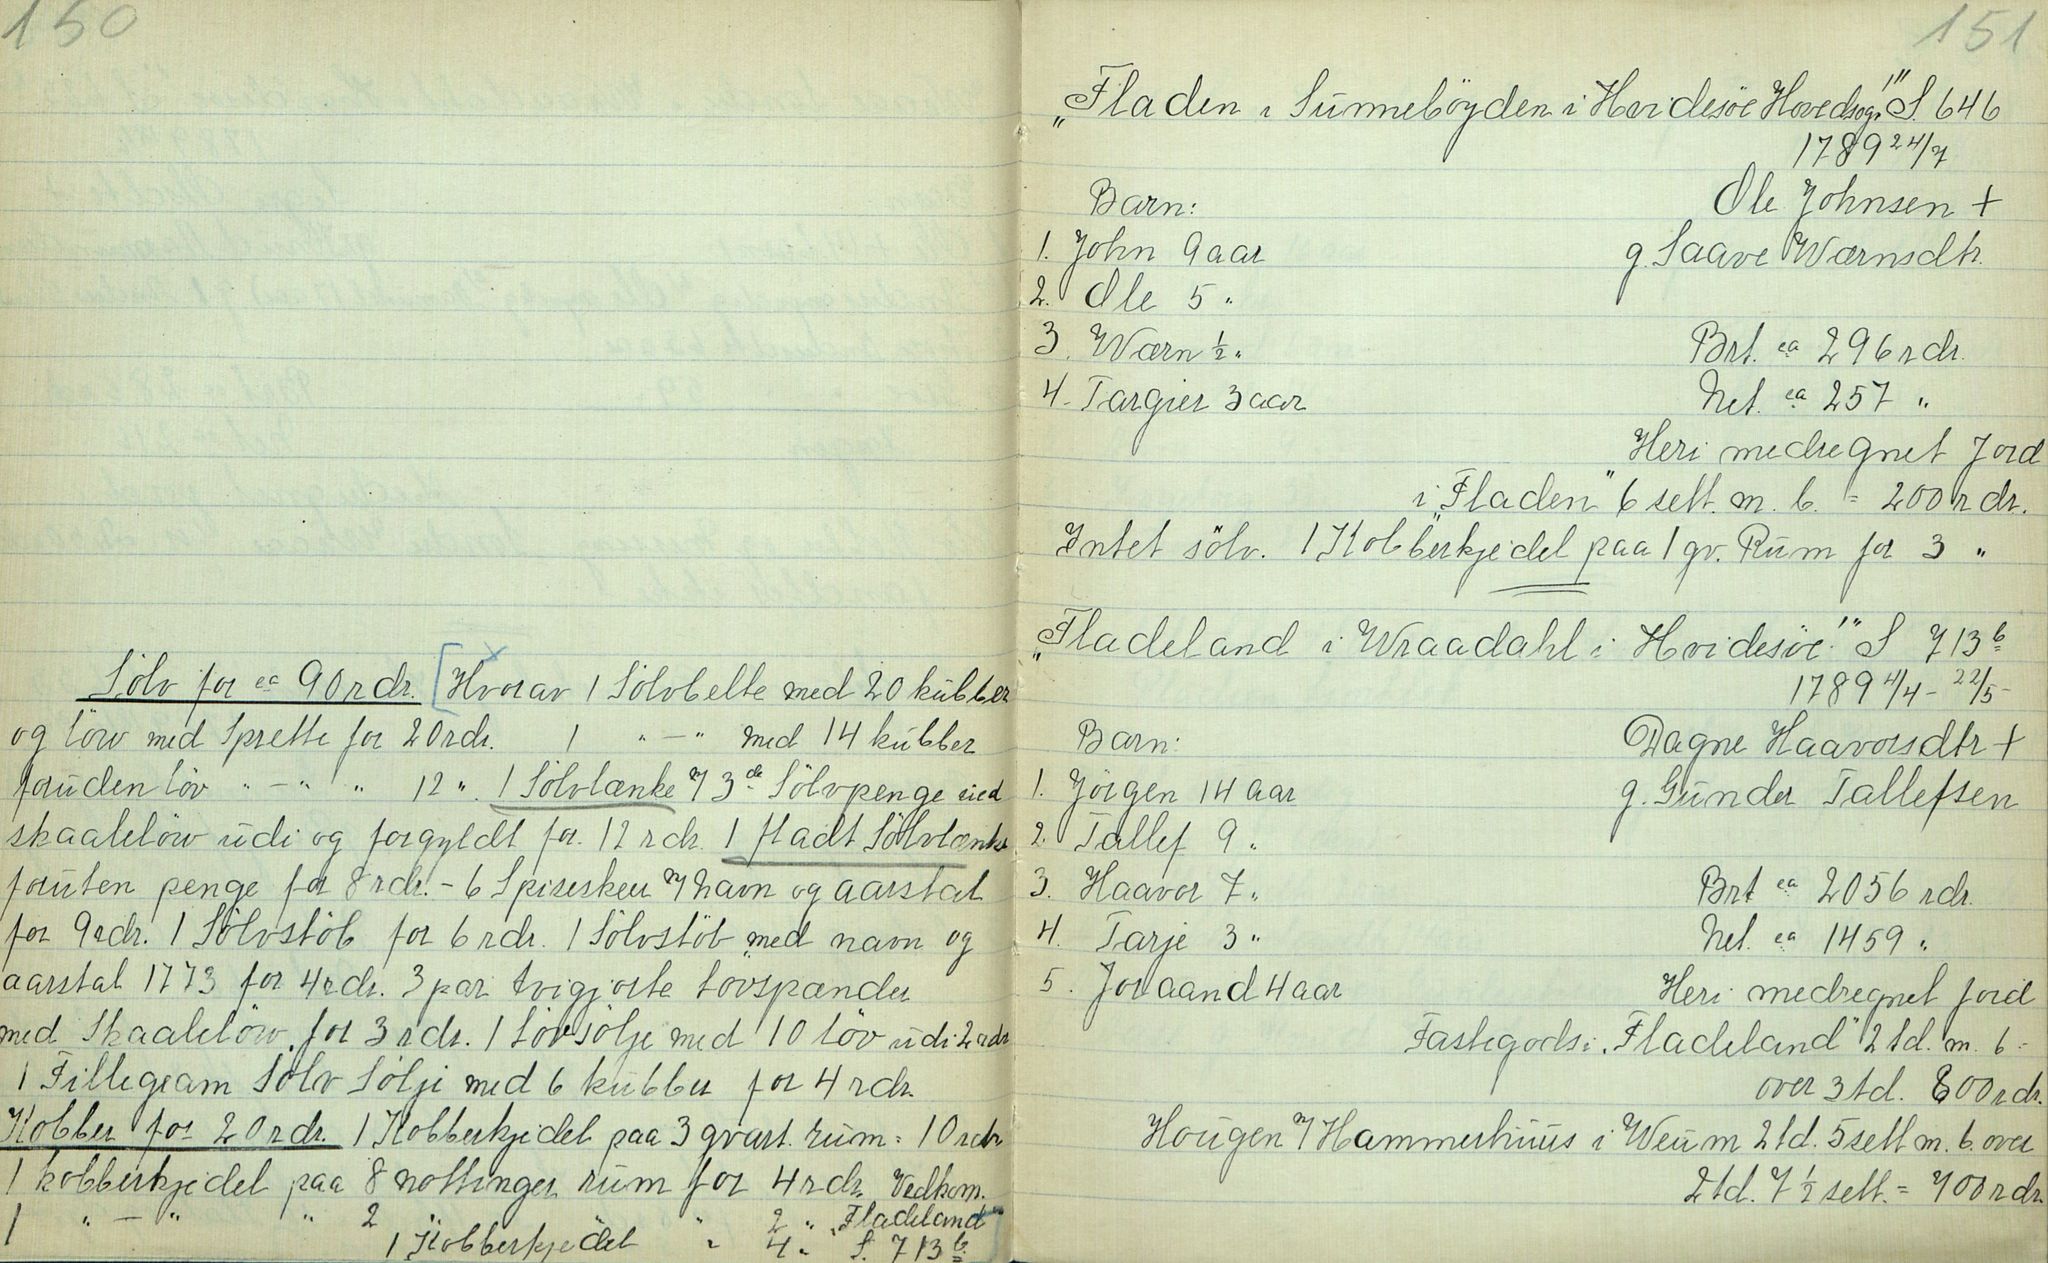 150
Sölv for ca 90 rdr. [Hvorav 1 Sölvbelte med 20 kübber
og löw med Sprette for 20 rdr. 1 " — " med 14 kübber
foruden löv " — " " 12 ". 1 Sölvlænke 3 de Sölvpenge
skaalelöw udi og forgyldt for 12 rdr. 1 fladt Sölvlænke
foruten penge for 8 rdr. - 6 Spiseskeer navn og aarstal
for 9 rdr. 1 Sölvstöb for 6 rdr. 1 Sölvstöb med navn og
aarstal 1773 for 4 rdr. 3 par tvigjorte lövspænder
med Skaalelöw for 3 rdr. 1 Lövsölje med 10 löv udi 2 rdr
1 Fillegram Sölv Sölje med 6 kübber for 4 rdr.
Kobber for 20 rdr. 1 Kobberkjedel paa 3 qvart. rüm = 10 rdr
1 kobberkjedel paa 8 nottinger rüm for 4 rdr. Vedkom.
1 " — " " 2 " " 2 " "Fladeland"
1 Kobberkjedel " 4 " S. 713 b
151
"Fladen i Sünneböyden i Hvidesöe Hovedsogn!" S. 646
1789 24/7
Barn: Ole Johnsen +
1. John 9 aar g. Saave Wærnsdtr.
2. Ole 5 "
3. Wærn ½ " Brt. ca 296 rdr.
4. Targier 3 aar Net. ca 257 "
Heri medregnet Jord
i "Fladen" 6 sett. m. b. = 200 rdr.
Intet sölv. 1 Kobberkjedel paa 1 qv. Rüm for 3 "
"Fladeland i Wraadahl i Hvidesöe!" S 713 b
1789 4/4 - 22/5 -
Barn: Dagne Haavorsdtr +
1. Jörgen 14 aar g. Gunder Tallefsen
2. Tallef 9 "
3. Haavor 7 " Brt ca 2056 rdr.
4. Tarje 3 " Net. ca 1459 "
5. Joraand 4 aar Heri medregnet jord
Fastegods i "Fladeland" 2 td. m. b -
over 3 td. 800 rdr.
Hougen Hammerhuus i Weum 2 td. 5 sett m. b. over
2 td. 7 ½ sett. = 700 rdr.